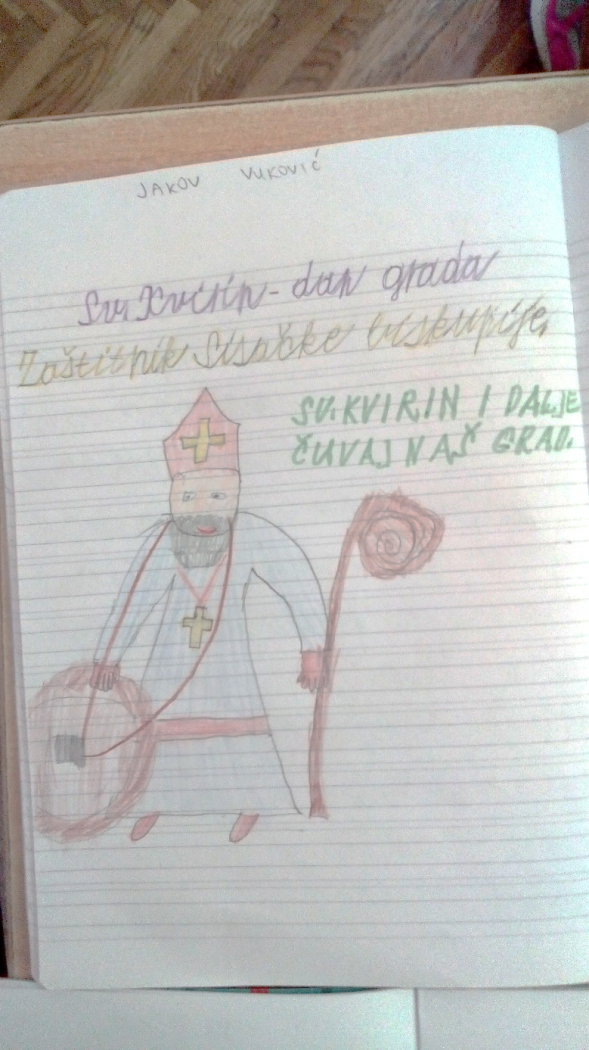 JAKOV VUKOVIĆ
Sv. Kvirin - dan grada
Zaštitnik Sisačke biskupije.
SV. KVIRIN I DALJE
ČUVAJ NAŠ GRAD.